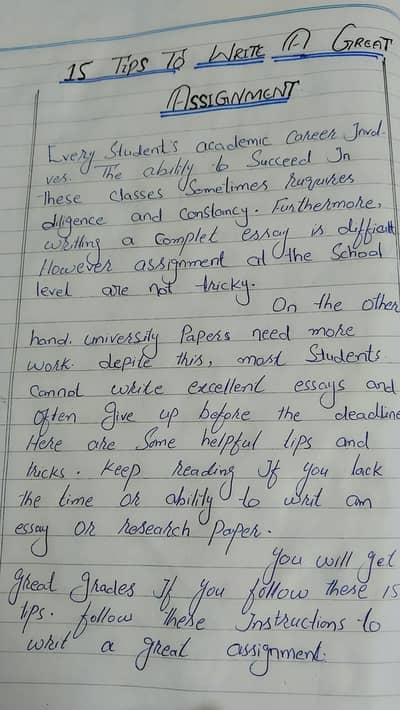 15 Tips To Write A Great
Assignment
Every Student's academic career Invol-
ves. The ability to Succeed In
these classes Sometimes ruquires
diligence and constancy. Furthermore,
writting a complet essay is difficult
However assignment at the School
level are not tricky.
On the other
hand. university Papers need more
work. depite this, most Students
Cannot write excellent essays and
often give up before the deadline
Here are Some helpful tips and
tricks. Keep reading If you lack
the time or ability to writ an
essay or research Paper.
You will get
great grades If you follow these 15
tips. follow these Instructions to
writ a great assignment.